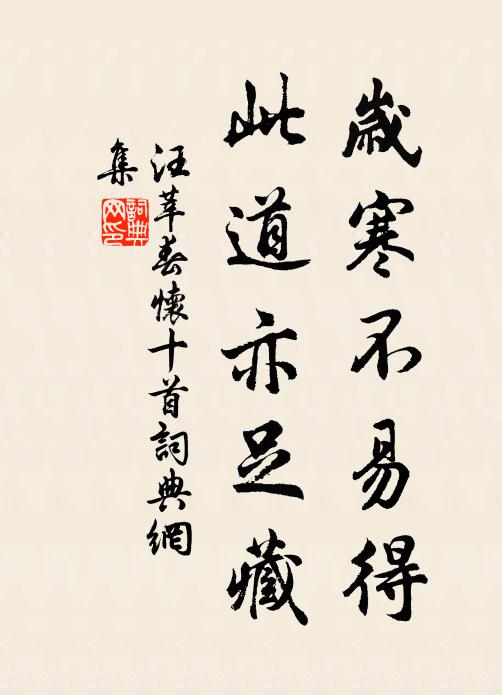 歲寒不易得
此道亦足藏
汪莘春懷十首詞典網
集
詞典網印